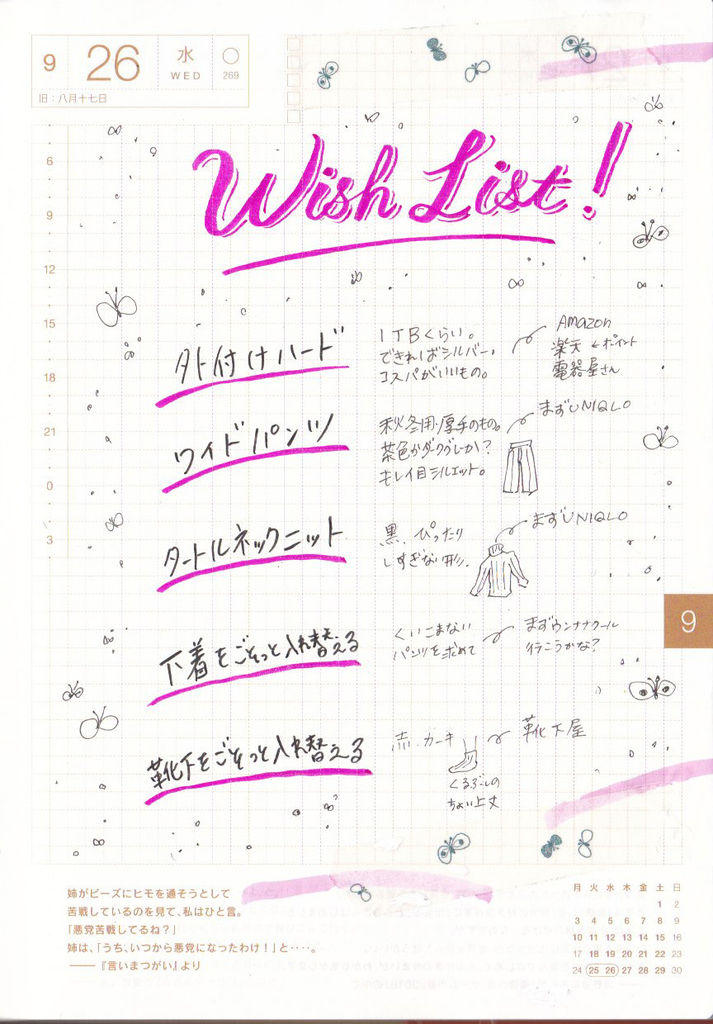 9 26 水 WED 269
旧：八月十七日
Wish List!
6
9
12
15
18
21
0
3
外付けハード
1TBくらい。
できればシルバー。
コスパがいいもの。
Amazon
楽天 ←ポイント
電器屋さん
ワイドパンツ
秋冬用・厚手のもの。
茶色かダークグレーか？
キレイ目シルエット。
まずUNIQLO
タートルネックニット
黒。ぴったり
しすぎない形。
まずUNIQLO
下着をごそっと入れ替える
くいこまない
パンツを求めて
まずウンナナクール
行こうかな？
靴下をごそっと入れ替える
赤・カーキ
くるぶしの
ちょい上丈
靴下屋
9
姉がビーズにヒモを通そうとして
苦戦しているのを見て、私はひと言。
「悪党苦戦してるね？」
姉は、「うち、いつから悪党になったわけ！」と‥‥。
——『言いまつがい』より
月 火 水 木 金 土 日
1 2
3 4 5 6 7 8 9
10 11 12 13 14 15 16
17 18 19 20 21 22 23
24 25 26 27 28 29 30